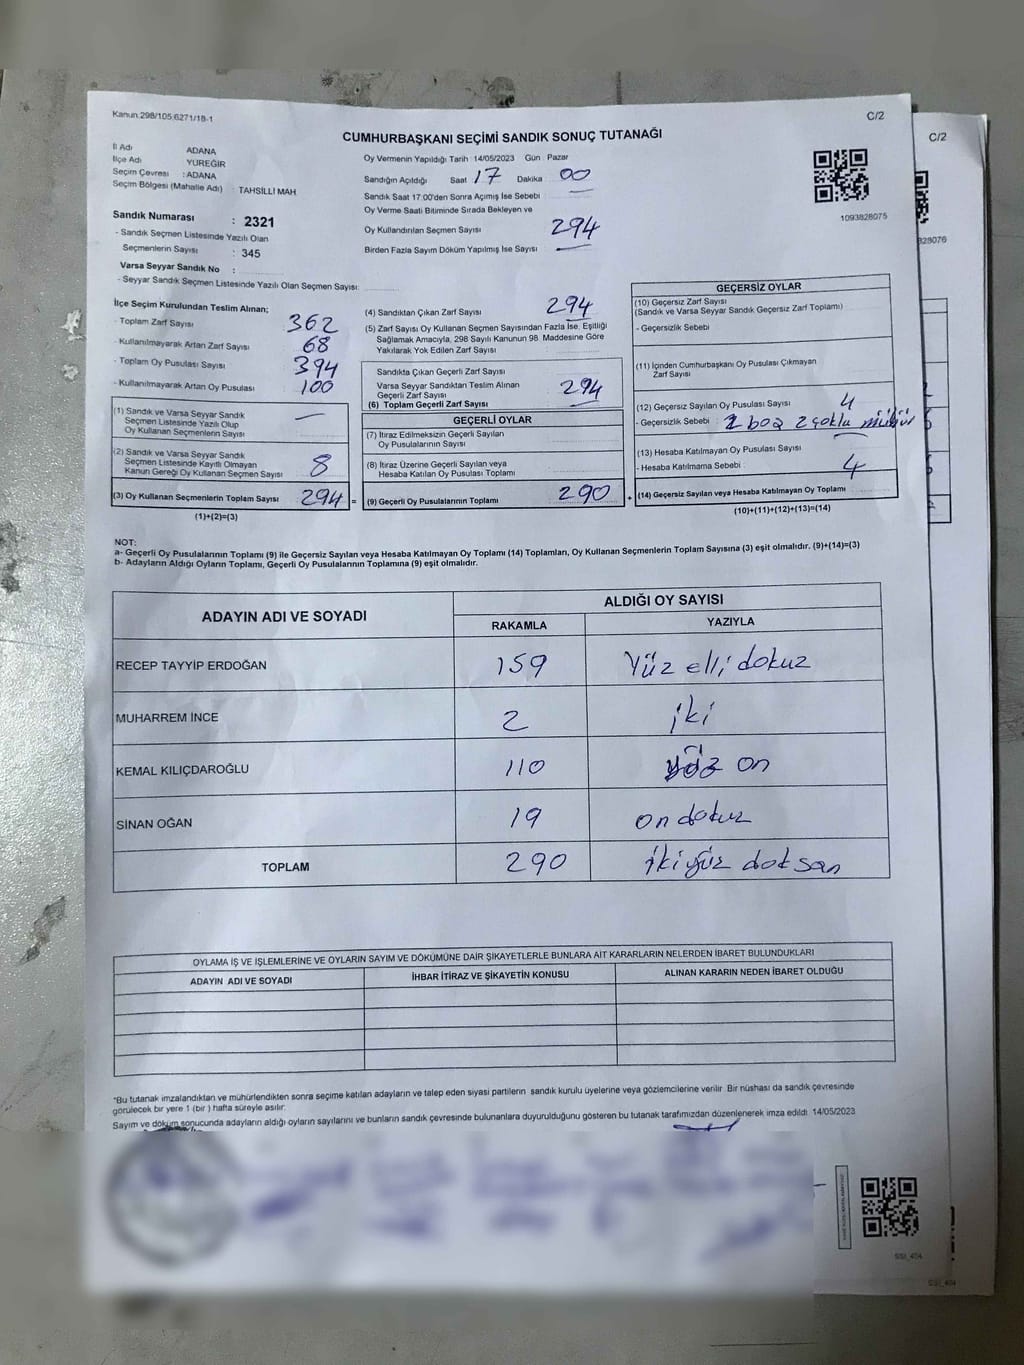 Kanun.298/105;6271/18-1
C/2
CUMHURBAŞKANI SEÇİMİ SANDIK SONUÇ TUTANAĞI
İl Adı ADANA
İlçe Adı YÜREĞİR
Seçim Çevresi : ADANA
Seçim Bölgesi (Mahalle Adı) : TAHSİLLİ MAH
Sandık Numarası : 2321
- Sandık Seçmen Listesinde Yazılı Olan
Seçmenlerin Sayısı : 345
Varsa Seyyar Sandık No :
- Seyyar Sandık Seçmen Listesinde Yazılı Olan Seçmen Sayısı:
Oy Vermenin Yapıldığı Tarih 14/05/2023 Gün : Pazar
Sandığın Açıldığı Saat 17 Dakika 00
Sandık Saat 17:00'den Sonra Açmış İse Sebebi
Oy Verme Saati Bitiminde Sırada Bekleyen ve
Oy Kullandırılan Seçmen Sayısı 294
Birden Fazla Sayım Döküm Yapılmış İse Sayısı
1093828075
C/2
828076
İlçe Seçim Kurulundan Teslim Alınan;
- Toplam Zarf Sayısı 362
- Kullanılmayarak Artan Zarf Sayısı 68
- Toplam Oy Pusulası Sayısı 394
- Kullanılmayarak Artan Oy Pusulası 100
(1) Sandık ve Varsa Seyyar Sandık
Seçmen Listesinde Yazılı Olup
Oy Kullanan Seçmenlerin Sayısı —
(2) Sandık ve Varsa Seyyar Sandık
Seçmen Listesinde Kayıtlı Olmayan
Kanun Gereği Oy Kullanan Seçmen Sayısı 8
(3) Oy Kullanan Seçmenlerin Toplam Sayısı 294 =
(1)+(2)=(3)
(4) Sandıktan Çıkan Zarf Sayısı 294
(5) Zarf Sayısı Oy Kullanan Seçmen Sayısından Fazla İse, Eşitliği
Sağlamak Amacıyla, 298 Sayılı Kanunun 98. Maddesine Göre
Yakılarak Yok Edilen Zarf Sayısı
Sandıkta Çıkan Geçerli Zarf Sayısı
Varsa Seyyar Sandıktan Teslim Alınan
Geçerli Zarf Sayısı
(6) Toplam Geçerli Zarf Sayısı 294
GEÇERLİ OYLAR
(7) İtiraz Edilmeksizin Geçerli Sayılan
Oy Pusulalarının Sayısı
(8) İtiraz Üzerine Geçerli Sayılan veya
Hesaba Katılan Oy Pusulası Toplamı
(9) Geçerli Oy Pusulalarının Toplamı 290 +
GEÇERSİZ OYLAR
(10) Geçersiz Zarf Sayısı
(Sandık ve Varsa Seyyar Sandık Geçersiz Zarf Toplamı)
- Geçersizlik Sebebi
(11) İçinden Cumhurbaşkanı Oy Pusulası Çıkmayan
Zarf Sayısı
(12) Geçersiz Sayılan Oy Pusulası Sayısı 4
- Geçersizlik Sebebi : 2 boş 2 çoklu mühür
(13) Hesaba Katılmayan Oy Pusulası Sayısı
- Hesaba Katılmama Sebebi : 4
(14) Geçersiz Sayılan veya Hesaba Katılmayan Oy Toplamı
(10)+(11)+(12)+(13)=(14)
NOT:
a- Geçerli Oy Pusulalarının Toplamı (9) ile Geçersiz Sayılan veya Hesaba Katılmayan Oy Toplamı (14) Toplamları, Oy Kullanan Seçmenlerin Toplam Sayısına (3) eşit olmalıdır. (9)+(14)=(3)
b- Adayların Aldığı Oyların Toplamı, Geçerli Oy Pusulalarının Toplamına (9) eşit olmalıdır.
ADAYIN ADI VE SOYADI
ALDIĞI OY SAYISI
RAKAMLA YAZIYLA
RECEP TAYYİP ERDOĞAN 159 Yüz elli dokuz
MUHARREM İNCE 2 iki
KEMAL KILIÇDAROĞLU 110 yüz on
SİNAN OĞAN 19 on dokuz
TOPLAM 290 ikiyüz doksan
OYLAMA İŞ VE İŞLEMLERİNE VE OYLARIN SAYIM VE DÖKÜMÜNE DAİR ŞİKAYETLERLE BUNLARA AİT KARARLARIN NELERDEN İBARET BULUNDUKLARI
ADAYIN ADI VE SOYADI İHBAR İTİRAZ VE ŞİKAYETİN KONUSU ALINAN KARARIN NEDEN İBARET OLDUĞU
*Bu tutanak imzalandıktan ve mühürlendikten sonra seçime katılan adayların ve talep eden siyasi partilerin sandık kurulu üyelerine veya gözlemcilerine verilir. Bir nüshası da sandık çevresinde
görülecek bir yere 1 (bir) hafta süreyle asılır.
Sayım ve döküm sonucunda adayların aldığı oyların sayılarını ve bunların sandık çevresinde bulunanlara duyurulduğunu gösteren bu tutanak tarafımızdan düzenlenerek imza edildi. 14/05/2023
SSI_404
SSI_404